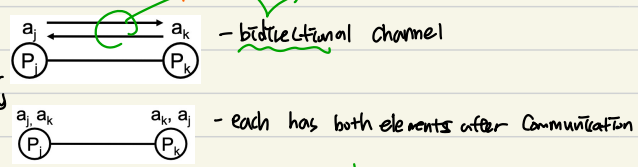 aj ak - bidirectional channel
Pj Pk
aj, ak ak, aj - each has both elements after communication
Pj Pk